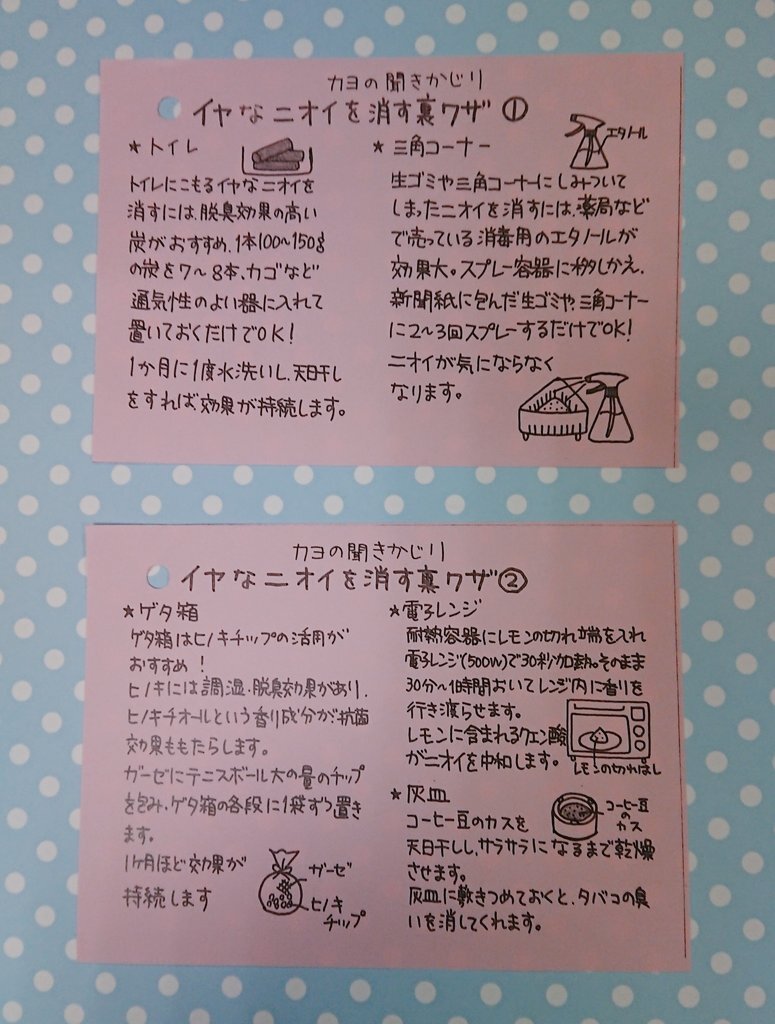 カヨの聞きかじり
イヤなニオイを消す裏ワザ①
★トイレ
トイレにこもるイヤなニオイを
消すには、脱臭効果の高い
炭がおすすめ。1本100〜150g
の炭を7〜8本、カゴなど
通気性のよい器に入れて
置いておくだけでOK!
1か月に1度水洗いし、天日干し
をすれば効果が持続します。
★三角コーナー
エタノール
生ゴミや三角コーナーにしみついて
しまったニオイを消すには、薬局など
で売っている消毒用のエタノールが
効果大。スプレー容器に移しかえ、
新聞紙に包んだ生ゴミや、三角コーナー
に2〜3回スプレーするだけでOK!
ニオイが気にならなく
なります。
カヨの聞きかじり
イヤなニオイを消す裏ワザ②
★ゲタ箱
ゲタ箱はヒノキチップの活用が
おすすめ!
ヒノキには調湿・脱臭効果があり、
ヒノキチオールという香り成分が抗菌
効果ももたらします。
ガーゼにテニスボール大の量のチップ
を包み、ゲタ箱の各段に1袋ずつ置き
ます。
1ヶ月ほど効果が
持続します
ガーゼ
ヒノキ
チップ
★電子レンジ
耐熱容器にレモンの切れ端を入れ
電子レンジ(500W)で30秒加熱。そのまま
30分〜1時間おいてレンジ内に香りを
行き渡らせます。
レモンに含まれるクエン酸
がニオイを中和します。
レモンの切れはし
★灰皿
コーヒー豆のカスを
天日干しし、サラサラになるまで乾燥
させます。
灰皿に敷きつめておくと、タバコの臭
いを消してくれます。
コーヒー豆
の
カス